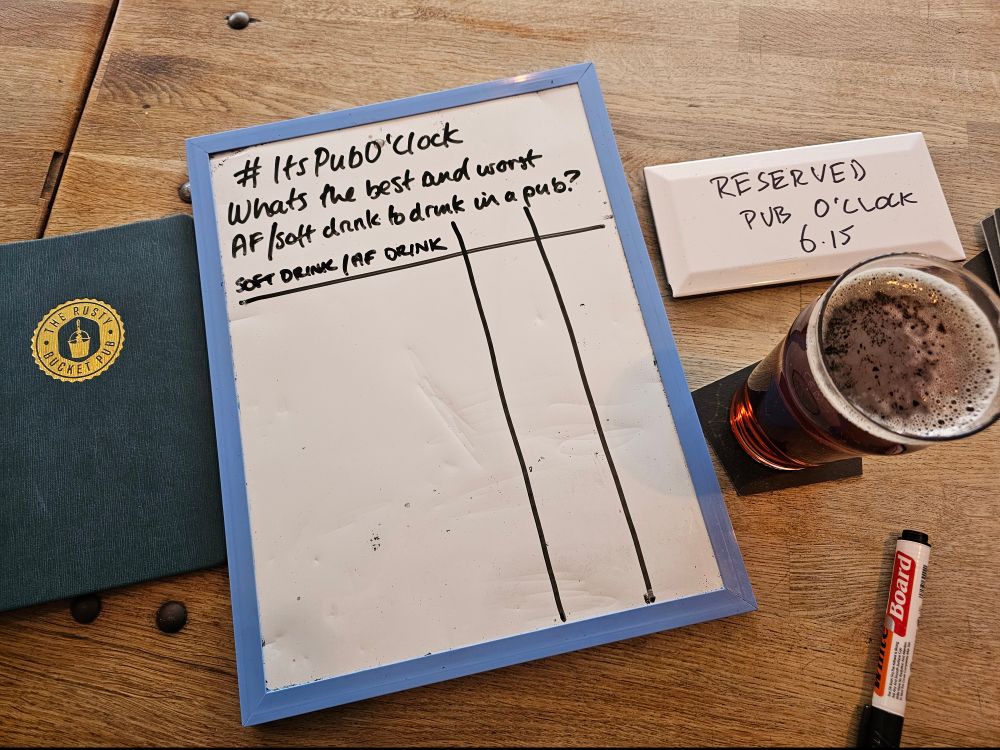 # ItsPubO'Clock
Whats the best and worst
AF/soft drink to drink in a pub?
SOFT DRINK/AF DRINK
RESERVED
PUB O'CLOCK
6.15
THE RUSTY
BUCKET PUB
White
Board